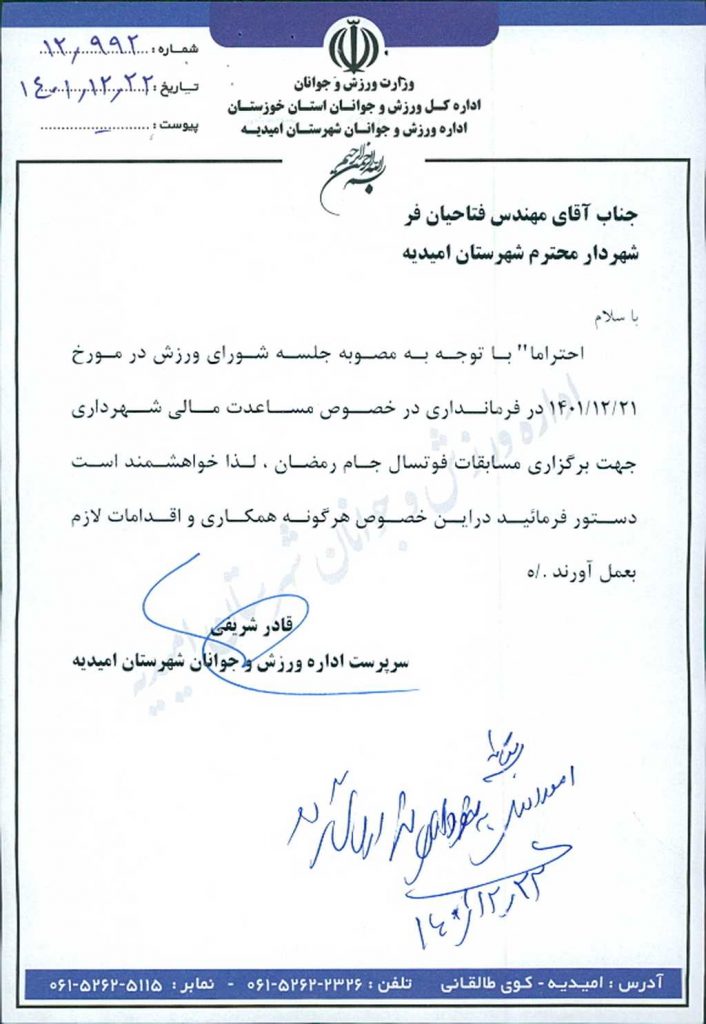 وزارت ورزش و جوانان
اداره کل ورزش و جوانان استان خوزستان
اداره ورزش و جوانان شهرستان امیدیه
شماره : ۱۲,۹۹۲
تاریخ : ۱۴۰۱,۱۲,۲۲
پیوست :
بسم الله الرحمن الرحیم
جناب آقای مهندس فتاحیان فر
شهردار محترم شهرستان امیدیه
با سلام
احتراما" با توجه به مصوبه جلسه شورای ورزش در مورخ
۱۴۰۱/۱۲/۲۱ در فرمانداری در خصوص مساعدت مالی شهرداری
جهت برگزاری مسابقات فوتسال جام رمضان ، لذا خواهشمند است
دستور فرمائید دراین خصوص هرگونه همکاری و اقدامات لازم
بعمل آورند ./ه
قادر شریفی
سرپرست اداره ورزش و جوانان شهرستان امیدیه
اداره ورزش و جوانان شهرستان امیدیه
۱۴۰۱,۱۲,۲۳
آدرس : امیدیه - کوی طالقانی تلفن : ۲۳۲۶-۵۲۶۲-۰۶۱ - نمابر : ۵۱۱۵-۵۲۶۲-۰۶۱